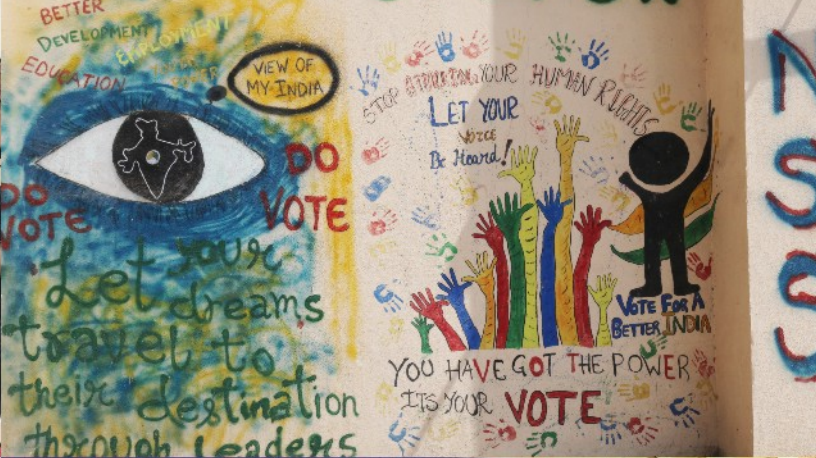 BETTER
DEVELOPMENT
EMPLOYMENT
EDUCATION
POWER
VIEW OF
MY INDIA
DO
VOTE
DO
VOTE
Let your
dreams
travel to
their destination
through leaders
STOP YOUR HUMAN RIGHTS
LET YOUR
VOICE
Be Heard!
VOTE FOR A
BETTER INDIA
YOU HAVE GOT THE POWER
ITS YOUR VOTE
N
S
S